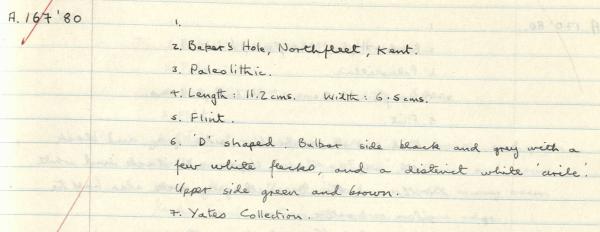 A. 167 '80
1.
2. Baker's Hole, Northfleet, Kent.
3. Paleolithic.
4. Length: 11.2 cms. Width: 6.5 cms.
5. Flint.
6. 'D' shaped. Bulbar side black and grey with a
few white flecks, and a distinct white 'circle'.
Upper side green and brown.
7. Yates Collection.